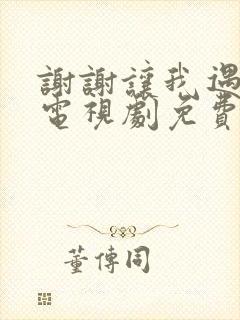 謝謝讓我遇
電視劇免費
董傳同